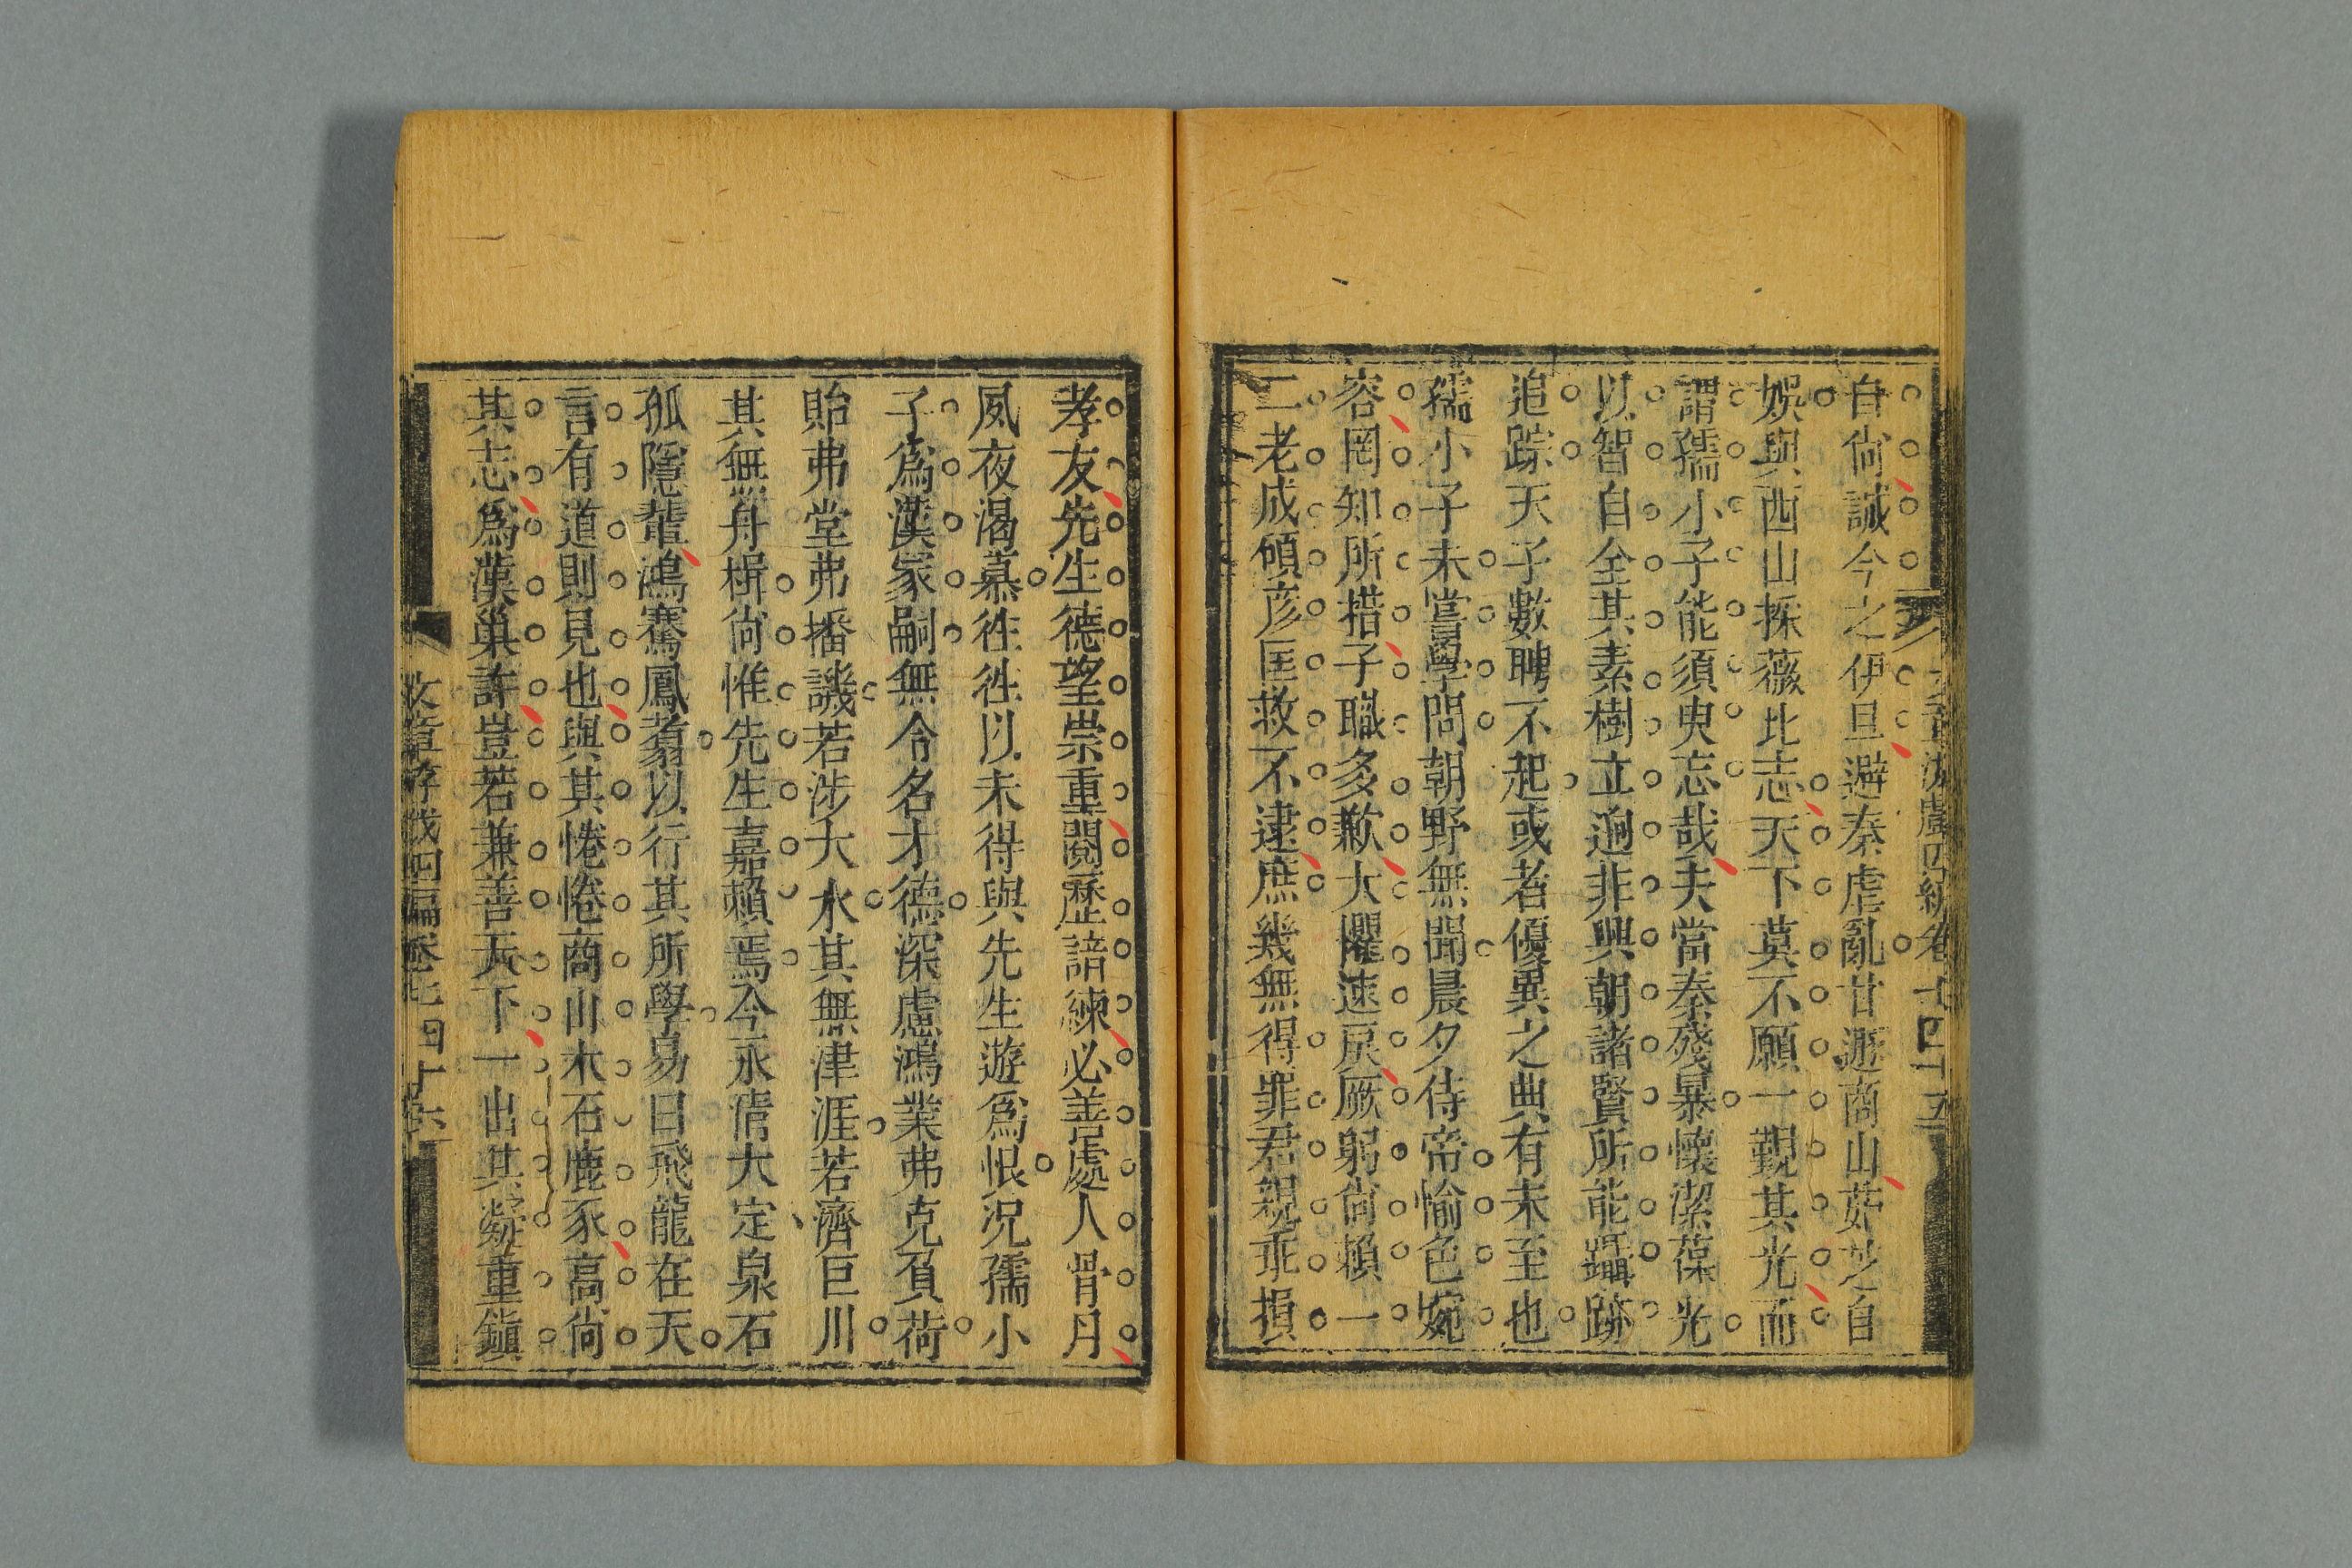 自尙誠今之伊旦避秦虐亂甘遯商山茹芝自
娛與西山採薇比志天下莫不願一覩其光而
謂孺小子能須臾忘哉夫當秦殘暴懷潔葆光
以智自全其素樹立迥非興朝諸賢所能躡跡
追踪天子數聘不起或者優異之典有未至也
孺小子未嘗學問朝野無聞晨夕侍帝愉色婉
容罔知所措子職多歉大懼速戾厥躬尙賴一
二老成碩彦匡救不逮庶幾無得罪君親乖損
文章游戲四編卷七 四十五
孝友先生德望崇重閱歷諳練必善處人骨月
夙夜渴慕往往以未得與先生遊爲恨況孺小
子爲漢家嗣無令名才德深慮鴻業弗克負荷
貽弗堂弗播譏若涉大水其無津涯若濟巨川
其無舟楫尙惟先生嘉賴焉今永情大定泉石
孤隱輩鴻騫鳳翥以行其所學易曰飛龍在天
言有道則見也與其惓惓商山木石鹿豕高尙
其志爲漢巢許豈若兼善天下一出其凝重鎭
文章游戲四編卷七 四十六